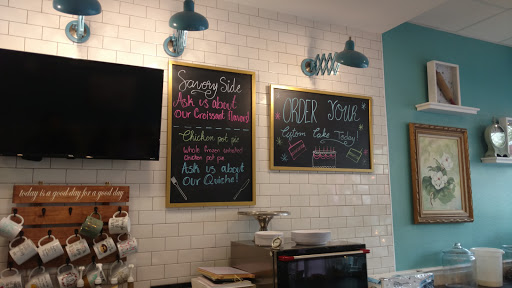 Savory Side
Ask us about
our Croissant flavors!
Chicken pot pie
Whole frozen
chicken pot pie
Ask us about
our Quiche!
ORDER Your
Custom Cake Today!
today is a good day for a good day